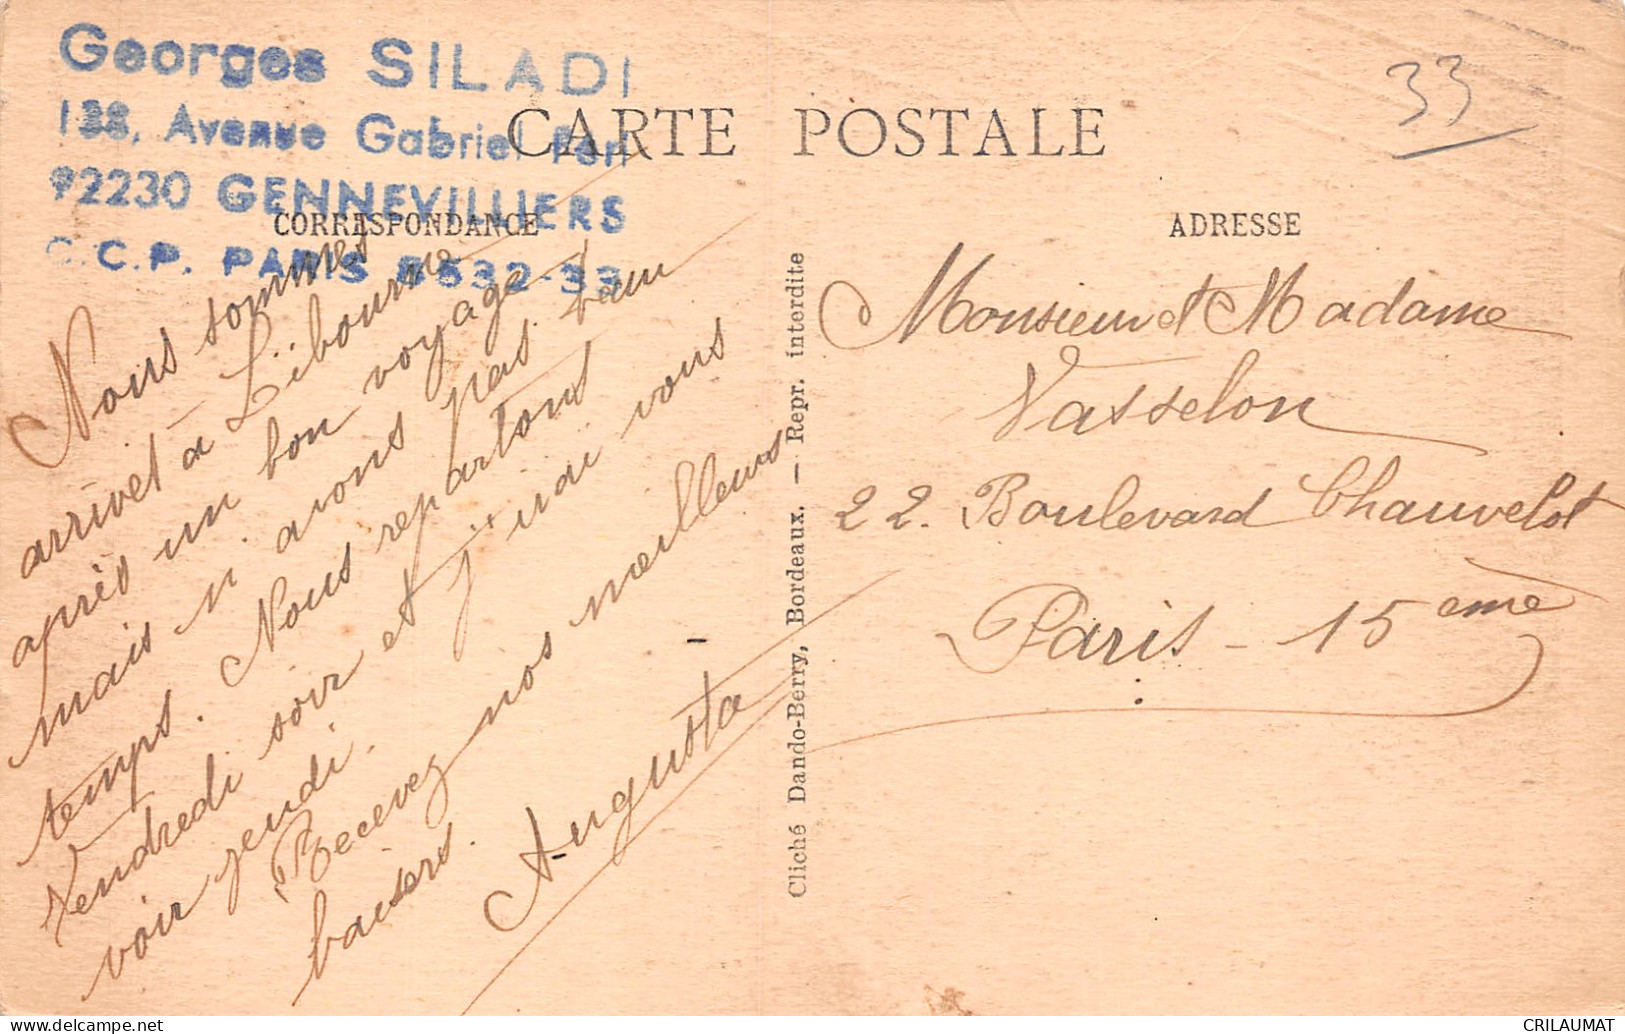 Georges SILADI
138, Avenue Gabriel Peri
92230 GENNEVILLIERS
C.C.P. PARIS 5532-33
33
CARTE POSTALE
CORRESPONDANCE
ADRESSE
Nous sommes
arrivet à Libourne
après un bon voyage
mais n'avons pas beau
temps. Nous repartons
Vendredi soir et j'irai vous
voir jeudi.
Recevez nos meilleurs
baisers.
Augusta
Cliché Dando-Berry, Bordeaux. — Repr. interdite
Monsieur et Madame
Vasselon
22. Boulevard Chauvelot
Paris - 15ème
CRILAUMAT